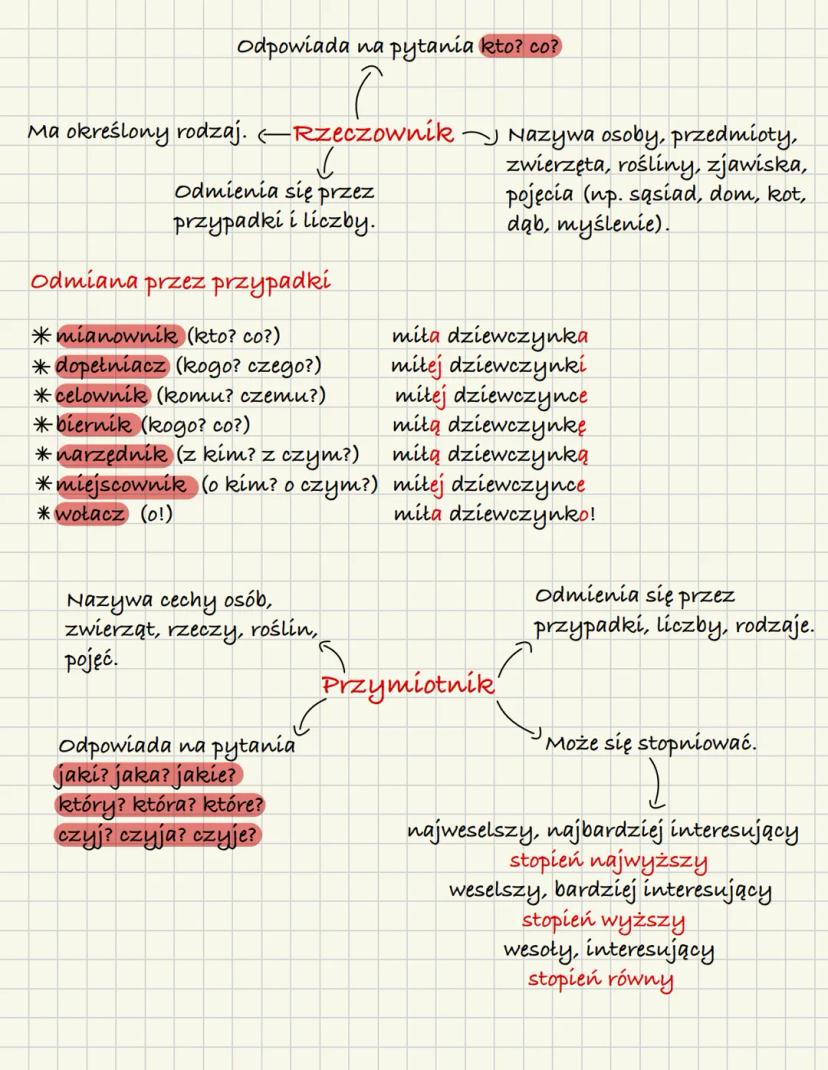 Odpowiada na pytania kto? co?
Ma określony rodzaj.
Rzeczownik
Nazywa osoby, przedmioty,
zwierzęta, rośliny, zjawiska,
pojęcia (np. sąsiad, dom, kot,
dąb, myślenie).
Odmienia się przez
przypadki i liczby.
Odmiana przez przypadki
* mianownik (kto? co?) miła dziewczynka
* dopełniacz (kogo? czego?) miłej dziewczynki
* celownik (komu? czemu?) miłej dziewczynce
* biernik (kogo? co?) miłą dziewczynkę
* narzędnik (z kim? z czym?) miłą dziewczynką
* miejscownik (o kim? o czym?) miłej dziewczynce
* wołacz (o!) miła dziewczynko!
Nazywa cechy osób,
zwierząt, rzeczy, roślin,
pojęć.
Odmienia się przez
przypadki, liczby, rodzaje.
Przymiotnik
Odpowiada na pytania
jaki? jaka? jakie?
który? która? które?
czyj? czyja? czyje?
Może się stopniować.
najweselszy, najbardziej interesujący
stopień najwyższy
weselszy, bardziej interesujący
stopień wyższy
wesoły, interesujący
stopień równy